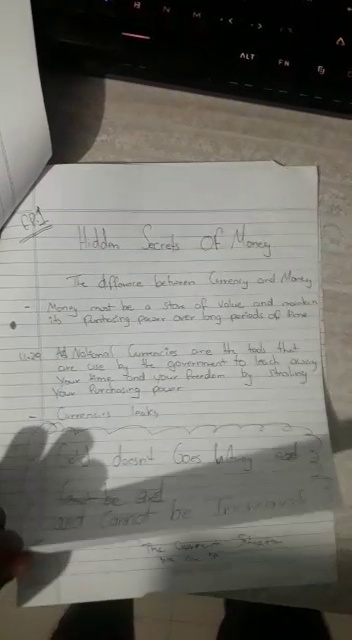 N M < >
ALT FN
EP.1
Hidden Secrets Of Money
The difference between Currency and Money
- Money must be a store of value and maintain
its purchasing power over long periods of time
11:20 National Currencies are the tools that
are use by the government to leach away
Your time and your freedom by stealing
Your Purchasing power
- Currencies leaks
doesn't Goes
and Cannot be
The